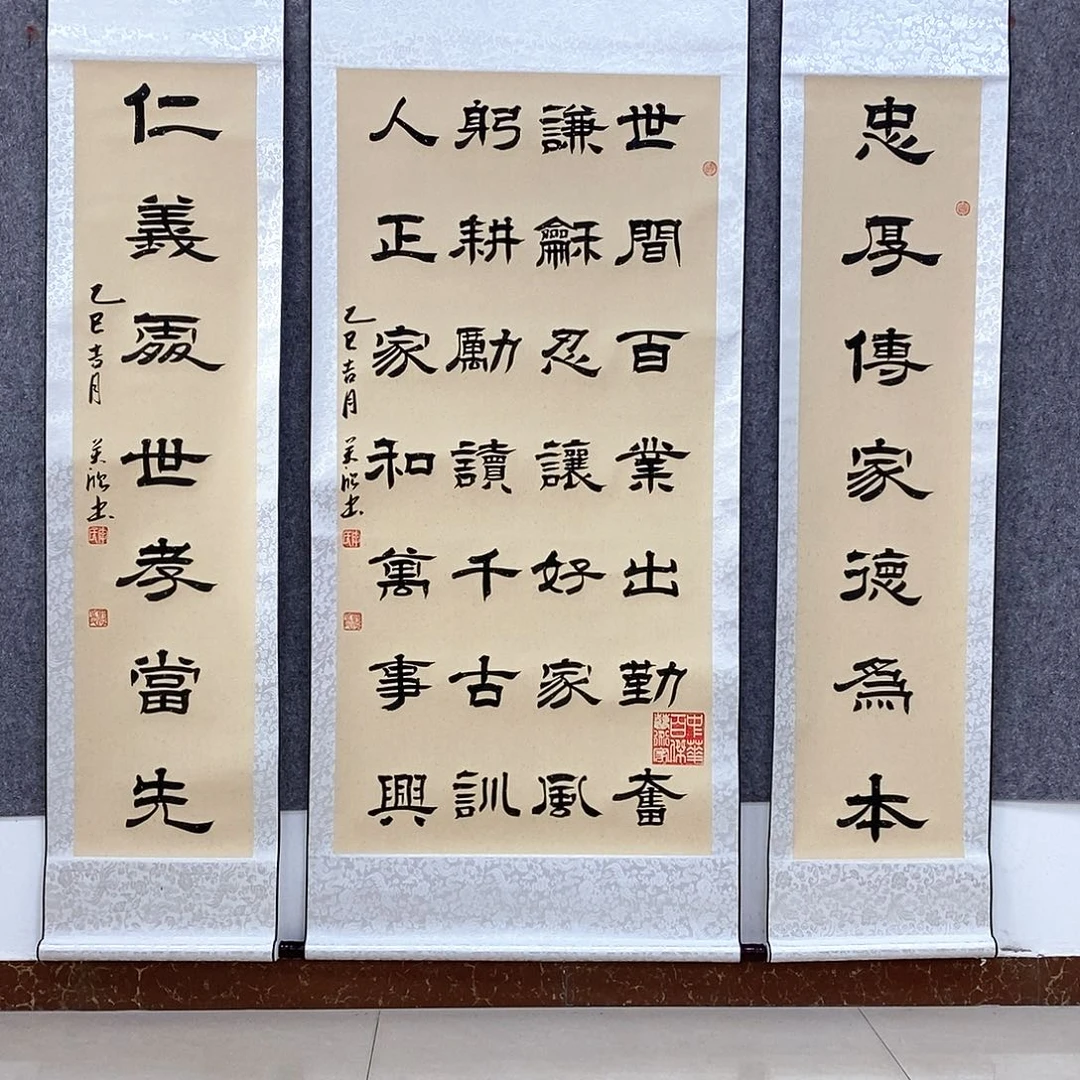 忠厚傳家德為本
世間百業出勤奮
謙龢忍讓好家風
躬耕勵讀千古訓
人正家和萬事興
乙巳吉月 美欣书
中華百傑
仁義處世孝當先
乙巳吉月 美欣书